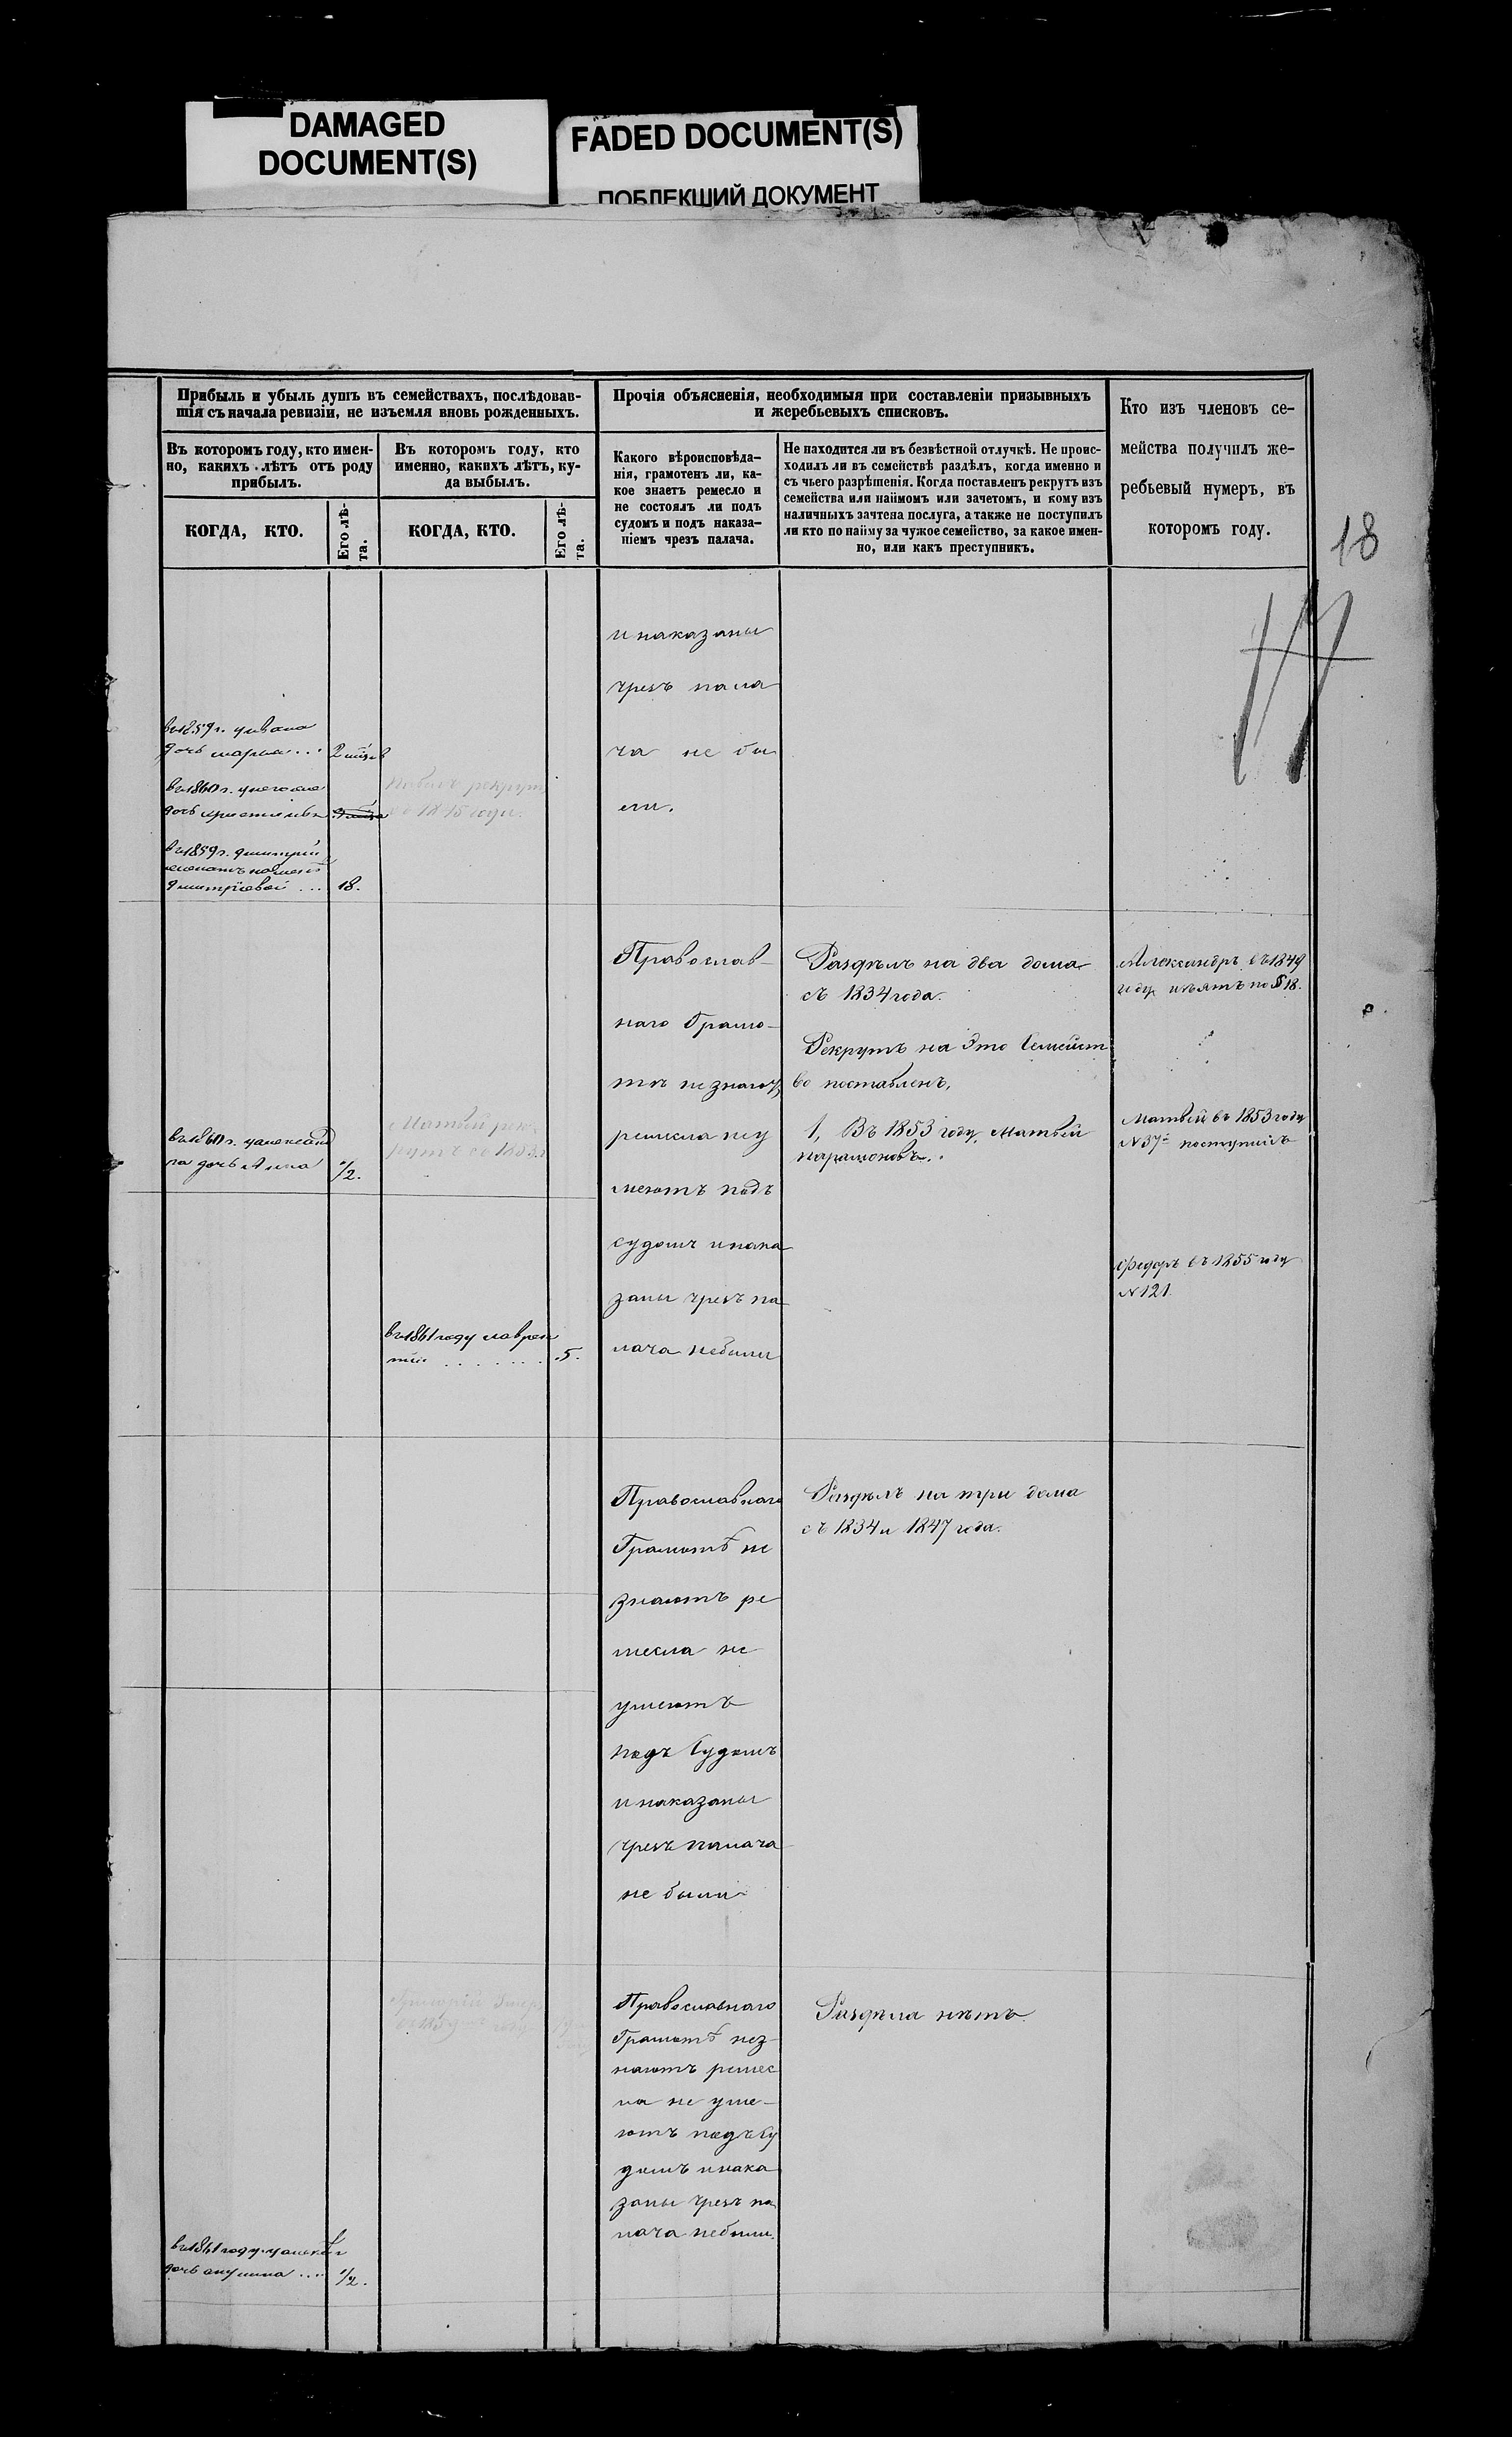 DAMAGED
DOCUMENT(S)
FADED DOCUMENT(S)
ПОБЛЕКШИЙ ДОКУМЕНТ
Прибыль и убыль душъ въ семействахъ, послѣдовав-
шія съ начала ревизіи, не изъемля вновь рожденныхъ.
Прочія объясненія, необходимыя при составленіи призывныхъ
и жеребьевыхъ списковъ.
Кто изъ членовъ се-
мейства получилъ же-
ребьевый нумеръ, въ
которомъ году.
Въ которомъ году, кто имен-
но, какихъ лѣтъ отъ роду
прибылъ.
Въ которомъ году, кто
именно, какихъ лѣтъ, ку-
да выбылъ.
Какого вѣроисповѣда-
нія, грамотенъ ли, ка-
кое знаетъ ремесло и
не состоялъ ли подъ
судомъ и подъ наказа-
ніемъ чрезъ палача.
Не находится ли въ безвѣстной отлучкѣ. Не проис-
ходилъ ли въ семействѣ раздѣлъ, когда именно и
съ чьего разрѣшенія. Когда поставленъ рекрутъ изъ
семейства или наймомъ или зачетомъ, и кому изъ
наличныхъ зачтена послуга, а также не поступилъ
ли кто по найму за чужое семейство, за какое имен-
но, или какъ преступникъ.
КОГДА, КТО.
Его лѣ-
та.
КОГДА, КТО.
Его лѣ-
та.
18
17
и наказаны
чрезъ пала
ча не бы
ли.
въ 1859 г. у Ивана
дочь Марья... 2
въ 1860 г. у него же
дочь
рекрут
1845 года.
въ 1859 г. Дмитрій
Дмитріевой ... 18.
Православ-
наго Грамо-
тѣ не знаютъ
ремесла не у
меютъ подъ
судомъ и нака
заны чрезъ па
лача небыли
Раздѣлъ на два дома
съ 1834 года.
Рекрутъ на Это Семейст
во поставленъ,
1, Въ 1853 году, Матвѣй
Парамоновъ.
Александръ въ 1849
году изъятъ по § 18.
Матвѣй въ 1853 году
N 37 поступилъ
Федоръ въ 1855 году
N 121
въ 1860 г. у Александ
ра дочь Анна 1/2.
Матвѣй рек-
рутъ въ 1853
въ 1861 году Лаврен
тій . . . . . . . 5.
Православнаго
Грамотѣ не
знаютъ ре
месла не
умеютъ
подъ Судомъ
и наказаны
чрезъ палача
не были
Раздѣлъ на три дома
съ 1834 и 1847 года.
Григорій
Православнаго
Грамотѣ нез-
наютъ ремес
ла не уме-
ютъ подъ Су
домъ и нака
заны чрезъ па
лача небыли.
Раздѣла нѣтъ
въ 1861 году
дочь Акулина .... 1/2.